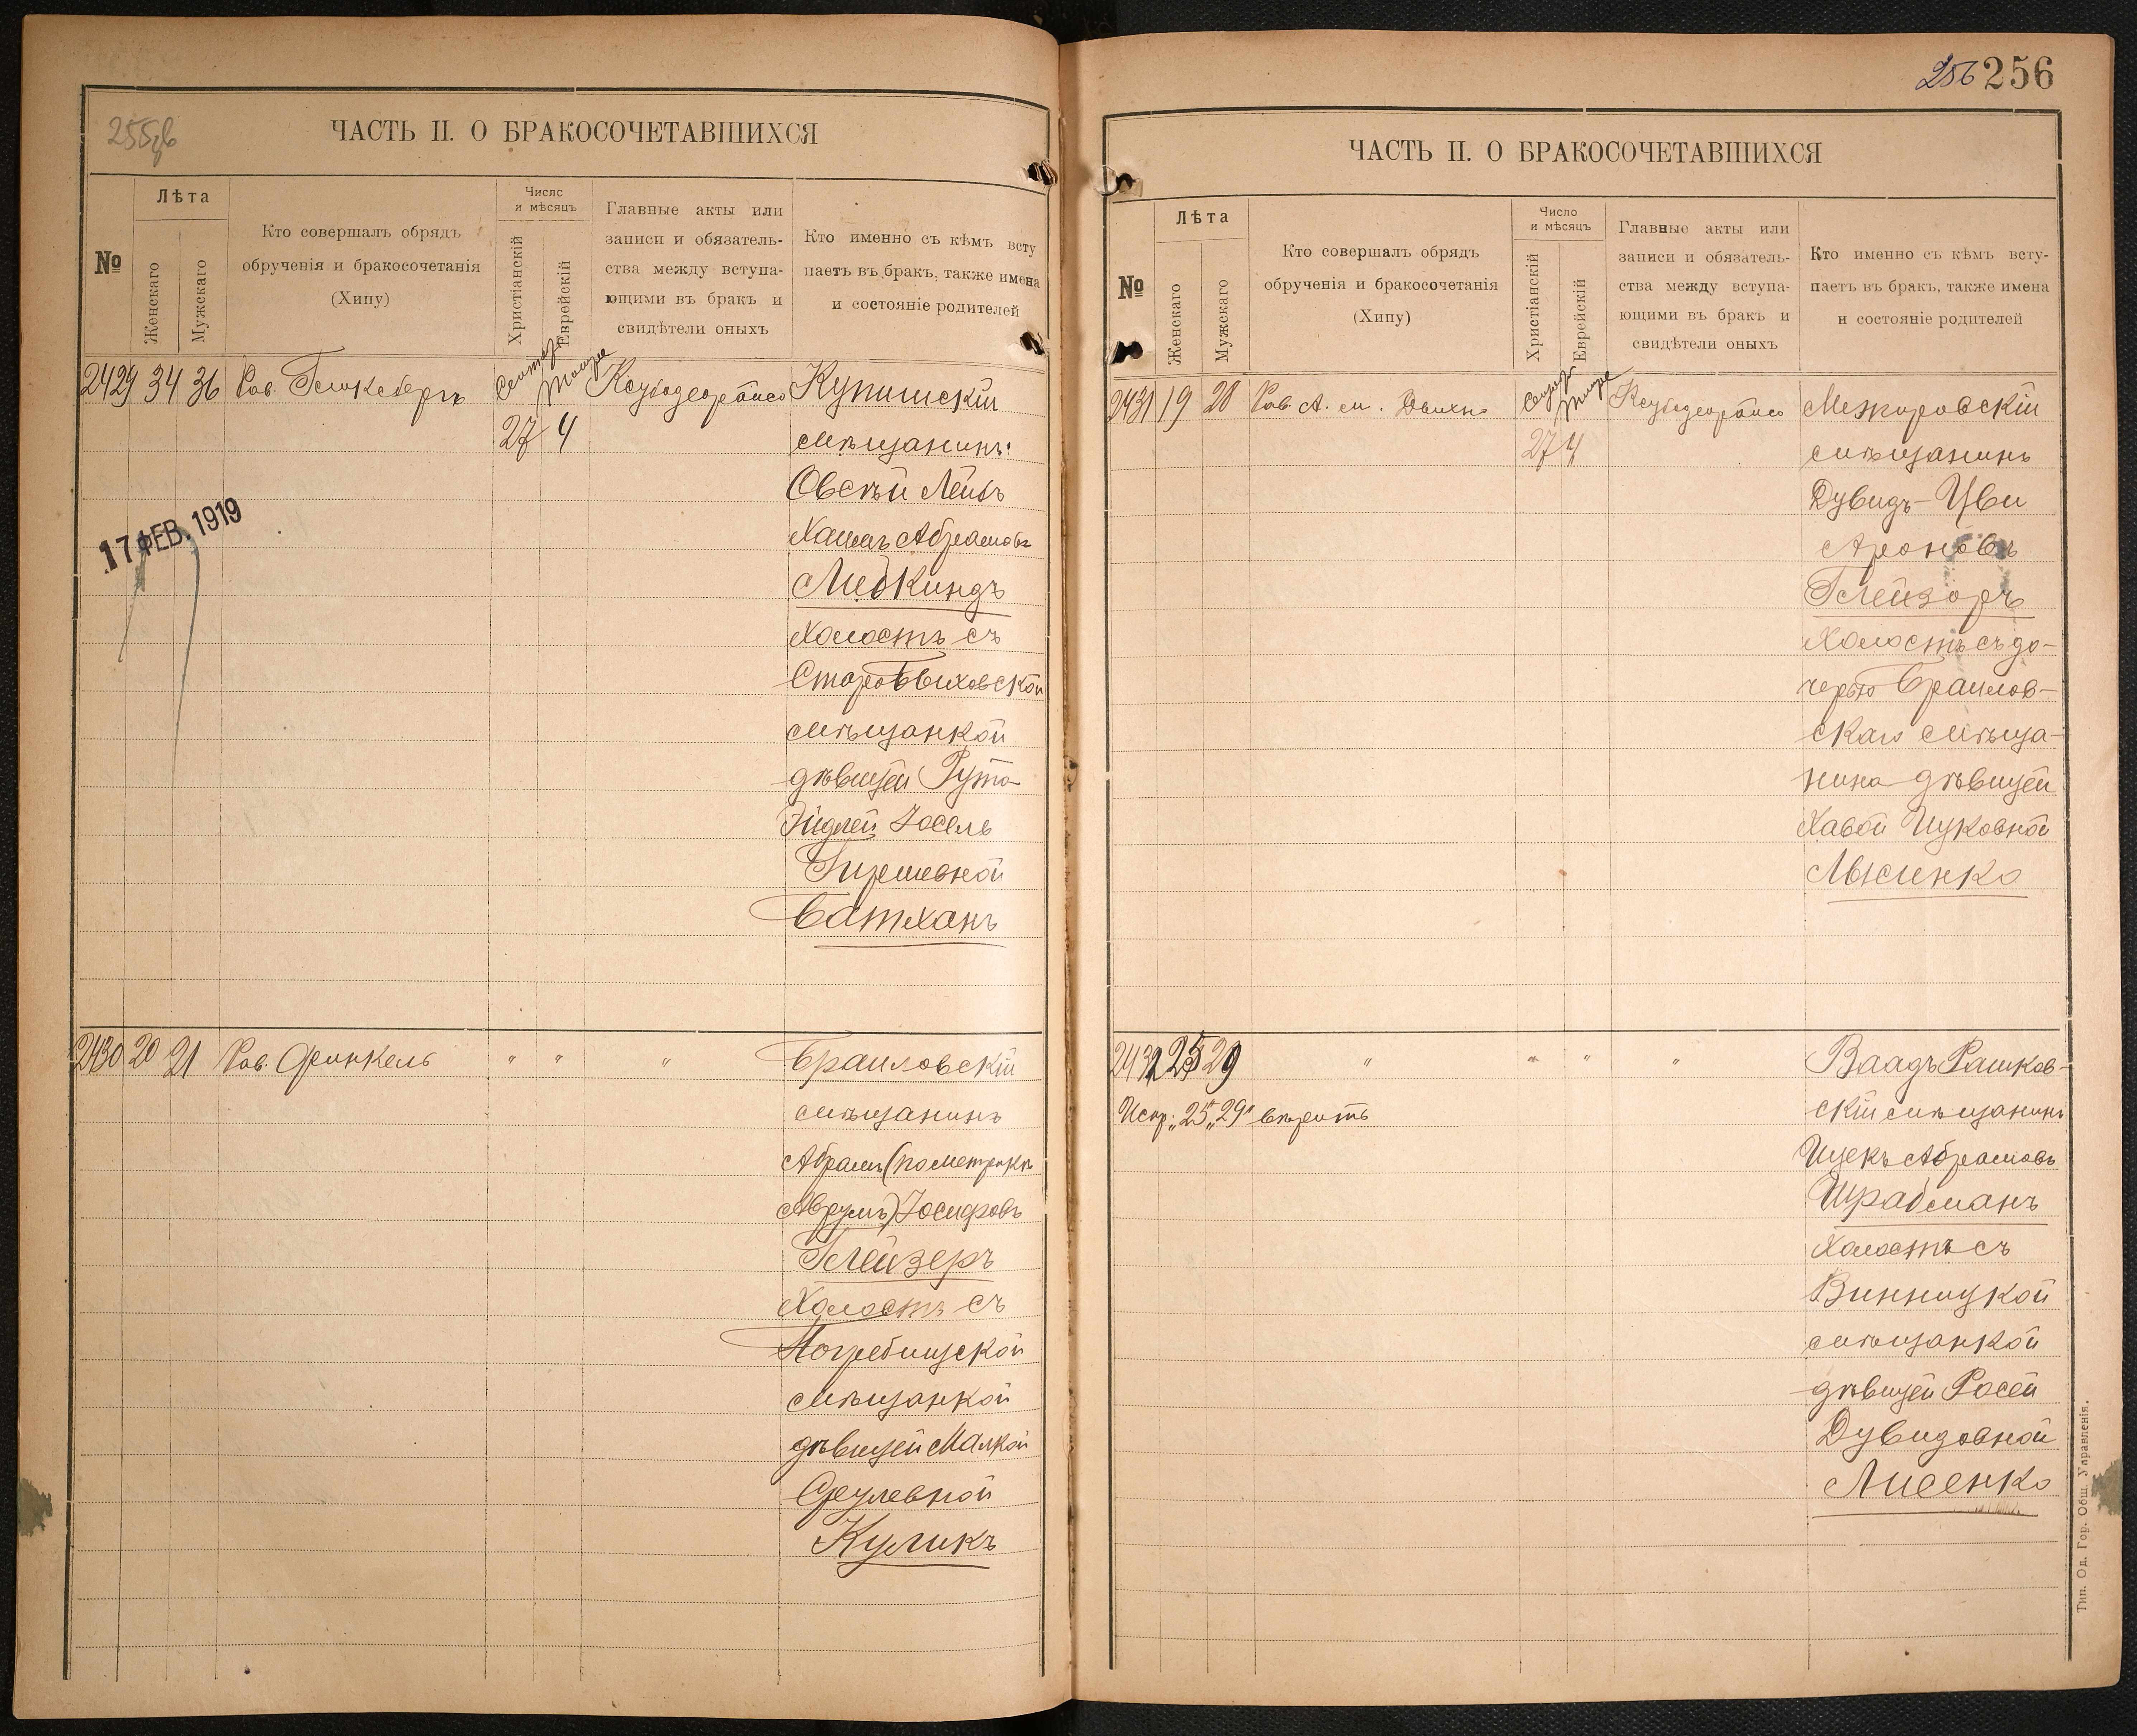 255об
ЧАСТЬ II. О БРАКОСОЧЕТАВШИХСЯ
№
Лѣта
Женскаго
Мужскаго
Кто совершалъ обрядъ
обрученія и бракосочетанія
(Хипу)
Число
и мѣсяцъ
Христіанскій
Еврейскій
Главные акты или
записи и обязатель-
ства между вступа-
ющими въ бракъ и
свидѣтели оныхъ
Кто именно съ кѣмъ всту
паетъ въ бракъ, также имена
и состояніе родителей
2429 34 36 Рав. Купишскій
27 4 мѣщанинъ
Овсѣй Лейбъ
Хаимъ Абрамовъ
Либкиндъ
Холостъ съ
Старобыховской
мѣщанкой
дѣвицей Гута
Эйдлей Іосель
Гиршевной
Батханъ
17 ФЕВ. 1919
2430 20 21 Рав. Финкель " " " Браиловскій
мѣщанинъ
Абрамъ (по метрикѣ
Аврумъ) Іосифовъ
Глейзеръ
Холостъ съ
Погребищской
мѣщанкой
дѣвицей Малкой
Срулевной
Куликъ
256 256
ЧАСТЬ II. О БРАКОСОЧЕТАВШИХСЯ
№
Лѣта
Женскаго
Мужскаго
Кто совершалъ обрядъ
обрученія и бракосочетанія
(Хипу)
Число
и мѣсяцъ
Христіанскій
Еврейскій
Главные акты или
записи и обязатель-
ства между вступа-
ющими въ бракъ и
свидѣтели оныхъ
Кто именно съ кѣмъ всту-
паетъ въ бракъ, также имена
и состояніе родителей
2431 19 28 Рав. А. Межировскій
27 4 мѣщанинъ
Дувидъ-Цви
Ароновъ
Глейзоръ
Холостъ съ до-
черью Браилов-
скаго мѣща-
нина дѣвицей
Хавой Ицковной
Лысенко
2432 25 29 " " " " Ваадъ Рашков-
скій мѣщанинъ
Испр: „25" „29" вѣрить
Ицекъ Абрамовъ
Шрабманъ
Холостъ съ
Винницкой
мѣщанкой
дѣвицей Росей
Дувидовной
Лисенко
Тип. Од. Гор. Общ. Управленія.